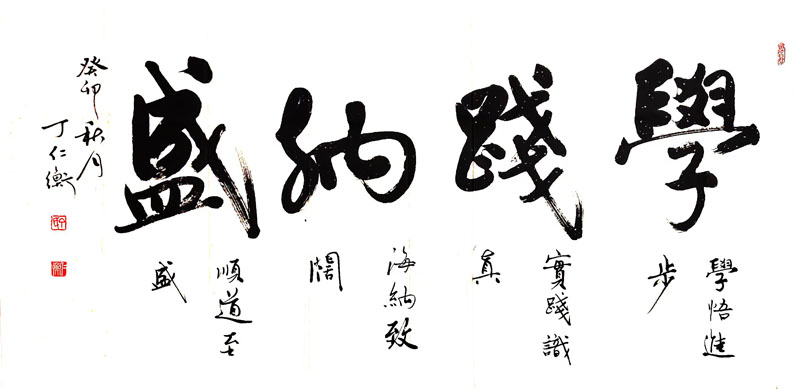 學踐納盛
學悟進
步
實踐識
真
海納致
闊
順道至
盛
癸卯秋月
丁仁衡